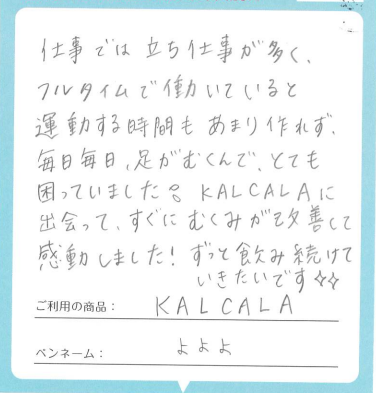 仕事では立ち仕事が多く、
フルタイムで働いていると
運動する時間もあまり作れず、
毎日毎日、足がむくんで、とても
困っていました。KALCALAに
出会って、すぐにむくみが改善して
感動しました！ずっと飲み続けて
いきたいです☆☆
ご利用の商品： KALCALA
ペンネーム： よよよ